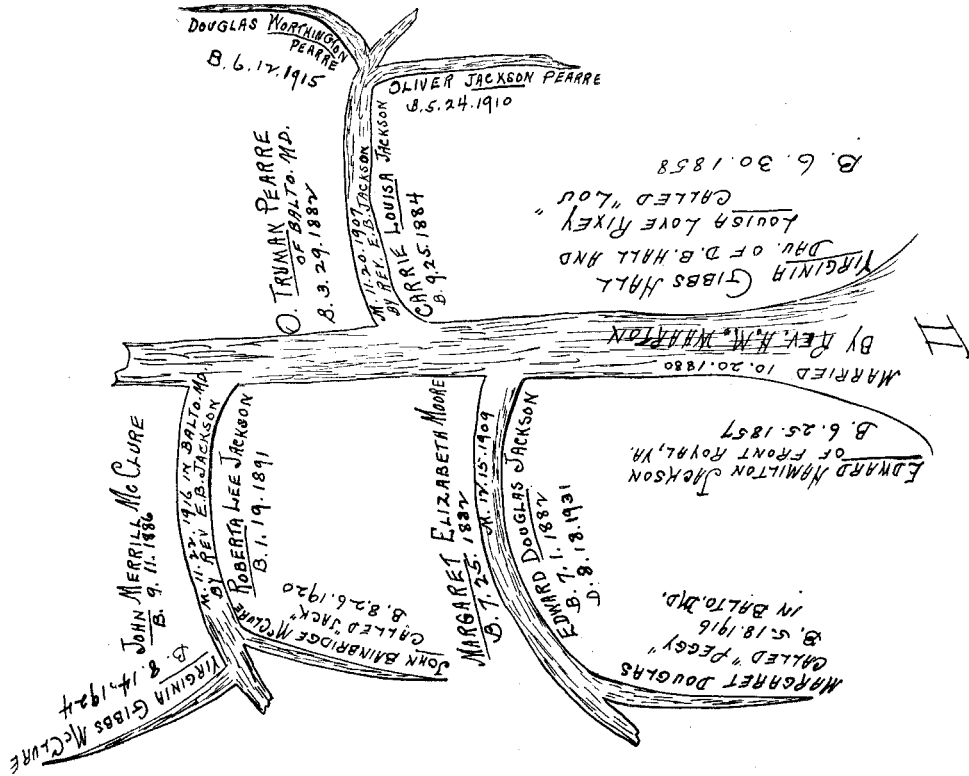 DOUGLAS WORTHINGTON
PEARRE
B. 6. 12. 1915
OLIVER JACKSON PEARRE
B. 5. 24. 1910
O. TRUMAN PEARRE
OF BALTO. MD.
B. 3. 29. 1882
M. 11. 20. 1907
BY REV. E. B. JACKSON
CARRIE LOUISA JACKSON
B. 9. 25. 1884
VIRGINIA GIBBS HALL
DAU. OF D. B. HALL AND
LOUISA LOVE RIXEY
CALLED "LOU"
B. 6. 30. 1858
II
MARRIED 10. 20. 1880
BY REV. H. M. WHARTON
EDWARD HAMILTON JACKSON
OF FRONT ROYAL, VA.
B. 6. 25. 1857
JOHN MERRILL McCLURE
B. 9. 11. 1886
M. 11. 22. 1916 IN BALTO. MD.
BY REV E. B. JACKSON
ROBERTA LEE JACKSON
B. 1. 19. 1891
JOHN BAINBRIDGE McCLURE
CALLED "JACK"
B. 8. 26. 1920
VIRGINIA GIBBS McCLURE
B. 8. 14. 1924
MARGARET ELIZABETH MOORE
B. 7. 25. 1882
M. 12. 15. 1909
EDWARD DOUGLAS JACKSON
B. 7. 1. 1882
D. 8. 18. 1931
MARGARET DOUGLAS
CALLED "PEGGY"
B. 5. 18. 1916
IN BALTO. MD.